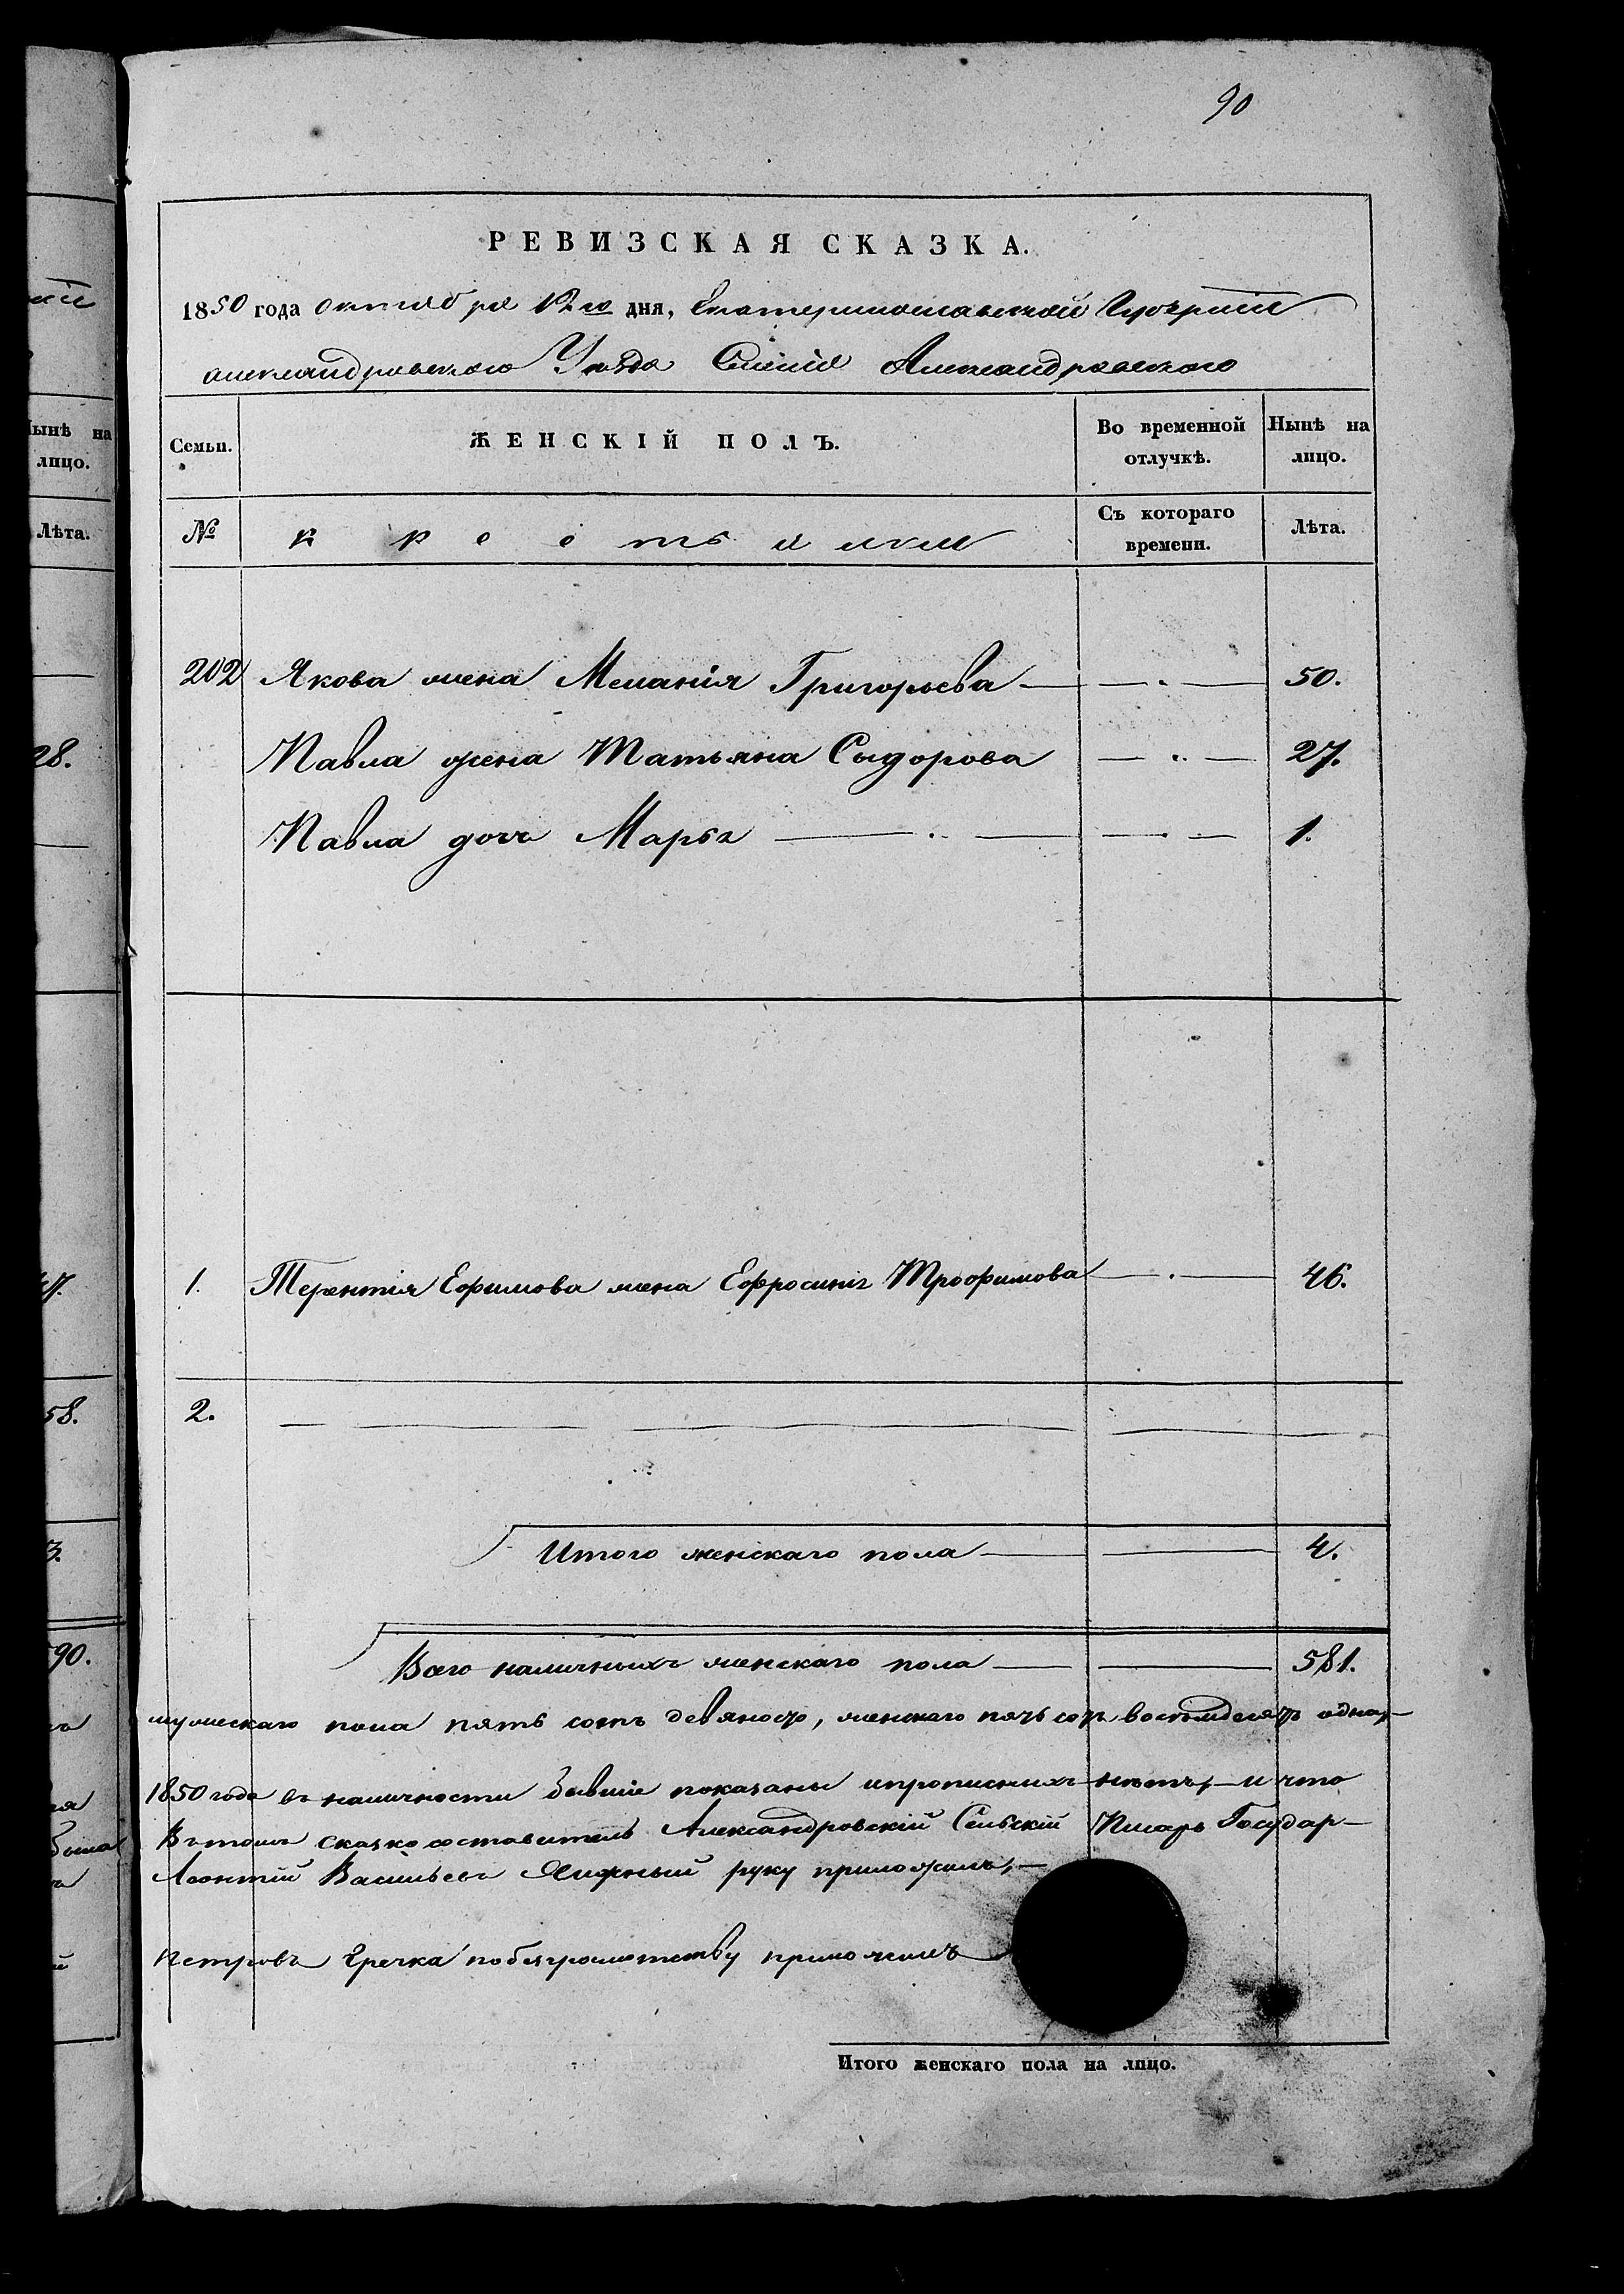 90
РЕВИЗСКАЯ СКАЗКА.
1850 года октября 12го дня, Екатеринославской Губерніи
александровского Уѣзда Селенія Александровского
Семьи.
ЖЕНСКІЙ ПОЛЪ.
Во временной отлучкѣ.
Нынѣ на лицо.
№
крестьянки
Съ котораго времени.
Лѣта.
202 Якова жена Меланія Григорьева — 50.
Павла жена Татьяна Сыдорова — 27.
Павла дочь Марья — 1.
1. Терентія Ефимова жена Ефросинія Трофимова — 46.
2.
Итого женскаго пола — 4.
Всего наличныхъ женскаго пола — 581.
мужескаго пола пять сотъ девяносто, женскаго пять сотъ восемдесятъ одна,—
1850 года въ наличности бывшіе показаны ипрописныхъ нѣтъ,— и что
Въ томъ сказко составитель Александровскій Сельскій Писарь Государ—
Леонтій Васильевъ руку приложилъ,—
Петровъ Гречка побезграмотству приложилъ
Итого женскаго пола на лицо.
Нынѣ на
лицо.
Лѣта.
28.
47.
58.
3.
90.